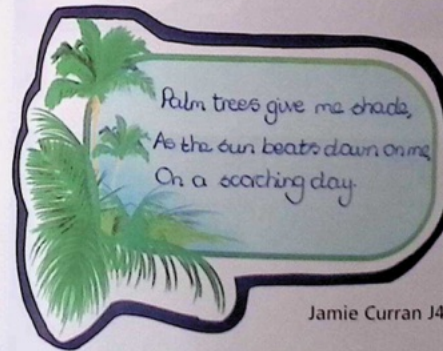 Palm trees give me shade,
As the sun beats down on me,
On a scorching day.
Jamie Curran J4